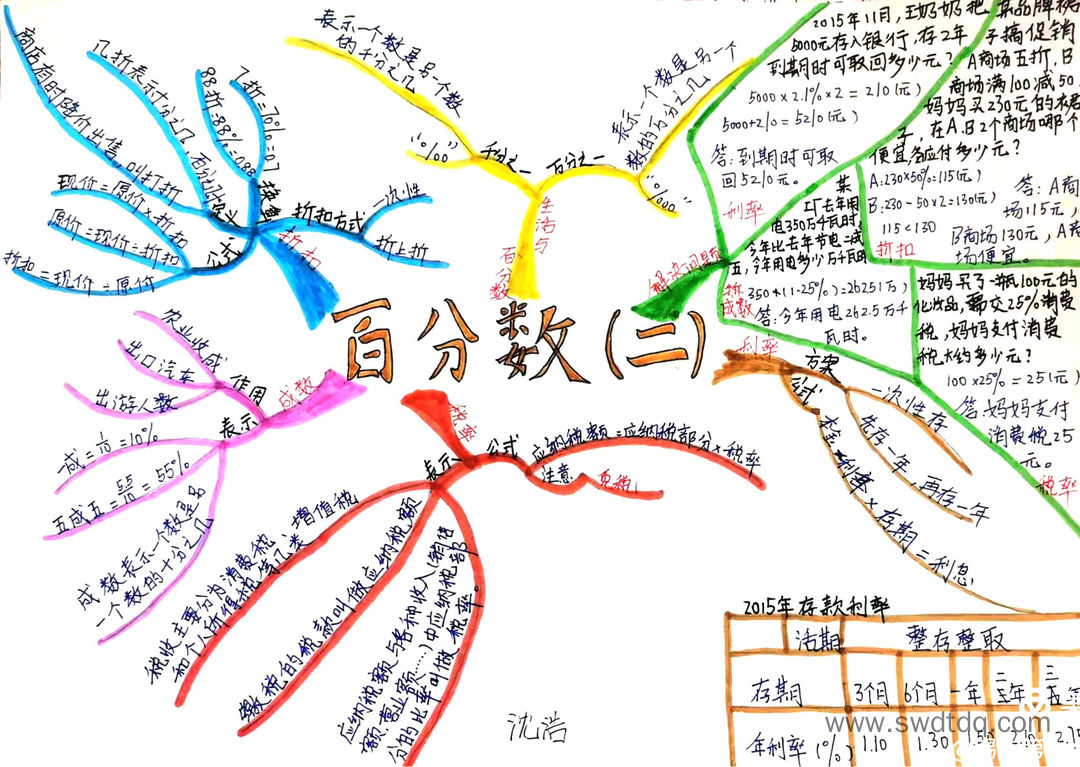 百分数(二)
折扣
意义
商店有时降价出售,叫打折
几折表示十分之几,百分之几十
换算
88折=88%=0.88
7折=70%=0.7
公式
现价=原价×折扣
原价=现价÷折扣
折扣=现价÷原价
折扣方式
一次性
折上折
生活与
百分数
千分之一
表示一个数是另一个数
的千分之几
"‰"
百分之一
表示一个数是另一个
数的百分之几
"%"
解决问题
利率
2015年11月,王奶奶把
5000元存入银行,存2年
到期时可取回多少元?
5000×2.1%×2=210(元)
5000+210=5210(元)
答:到期时可取
回5210元。
折扣
某品牌裙
子搞促销
A商场五折,B
商场满100减50
妈妈买230元的裙
子,在A.B2个商场哪个
便宜各应付多少元?
A:230×50%=115(元)
B:230-50×2=130(元)
115<130
答:A商
场115元,
B商场130元,A商
场便宜。
成数
某
工厂去年用
电350万千瓦时,
今年比去年节电二成
五,今年用电多少万千瓦时
答:今年用电262.5万千
瓦时。
税率
妈妈买了一瓶100元的
化妆品,需交25%消费
税,妈妈支付消费
税大约多少元?
100×25%=25(元)
答:妈妈支付
消费税25
元。
成数
作用
农业收成
出口汽车
出游人数
表示
一成=1/10=10%
五成五=5.5/10=55%
成数表示一个数是另
一个数的十分之几
税率
公式
应纳税额=应纳税部分×税率
注意
免税
表示
税收主要分为消费税、增值税
和个人所得税等几类
缴税的税款叫做应纳税额
应纳税额与各种收入(销售
额、营业额……)中应纳税部
分的比率叫做税率。
利率
方案
一次性存
先存一年,再存一年
公式
本金×利率×存期=利息
2015年存款利率
活期 整存整取
存期 3个月 6个月 一年 二年 三年
年利率(%) 1.10 1.30 1.50 2.10 2.75
沈浩
www.swdtdq.com